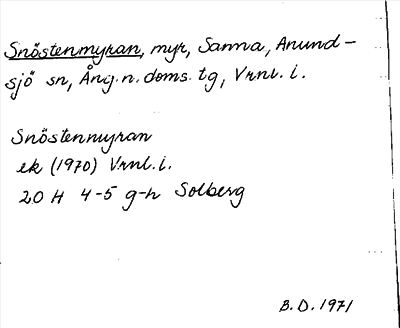 Snöstenmyran, myr, Sanna, Anund-
sjö sn, Ång. n. doms. tg, Vrnl. i.
Snöstenmyran
ek (1970) Vrnl. i.
20 H 4-5 g-h Solberg
B. D. 1971